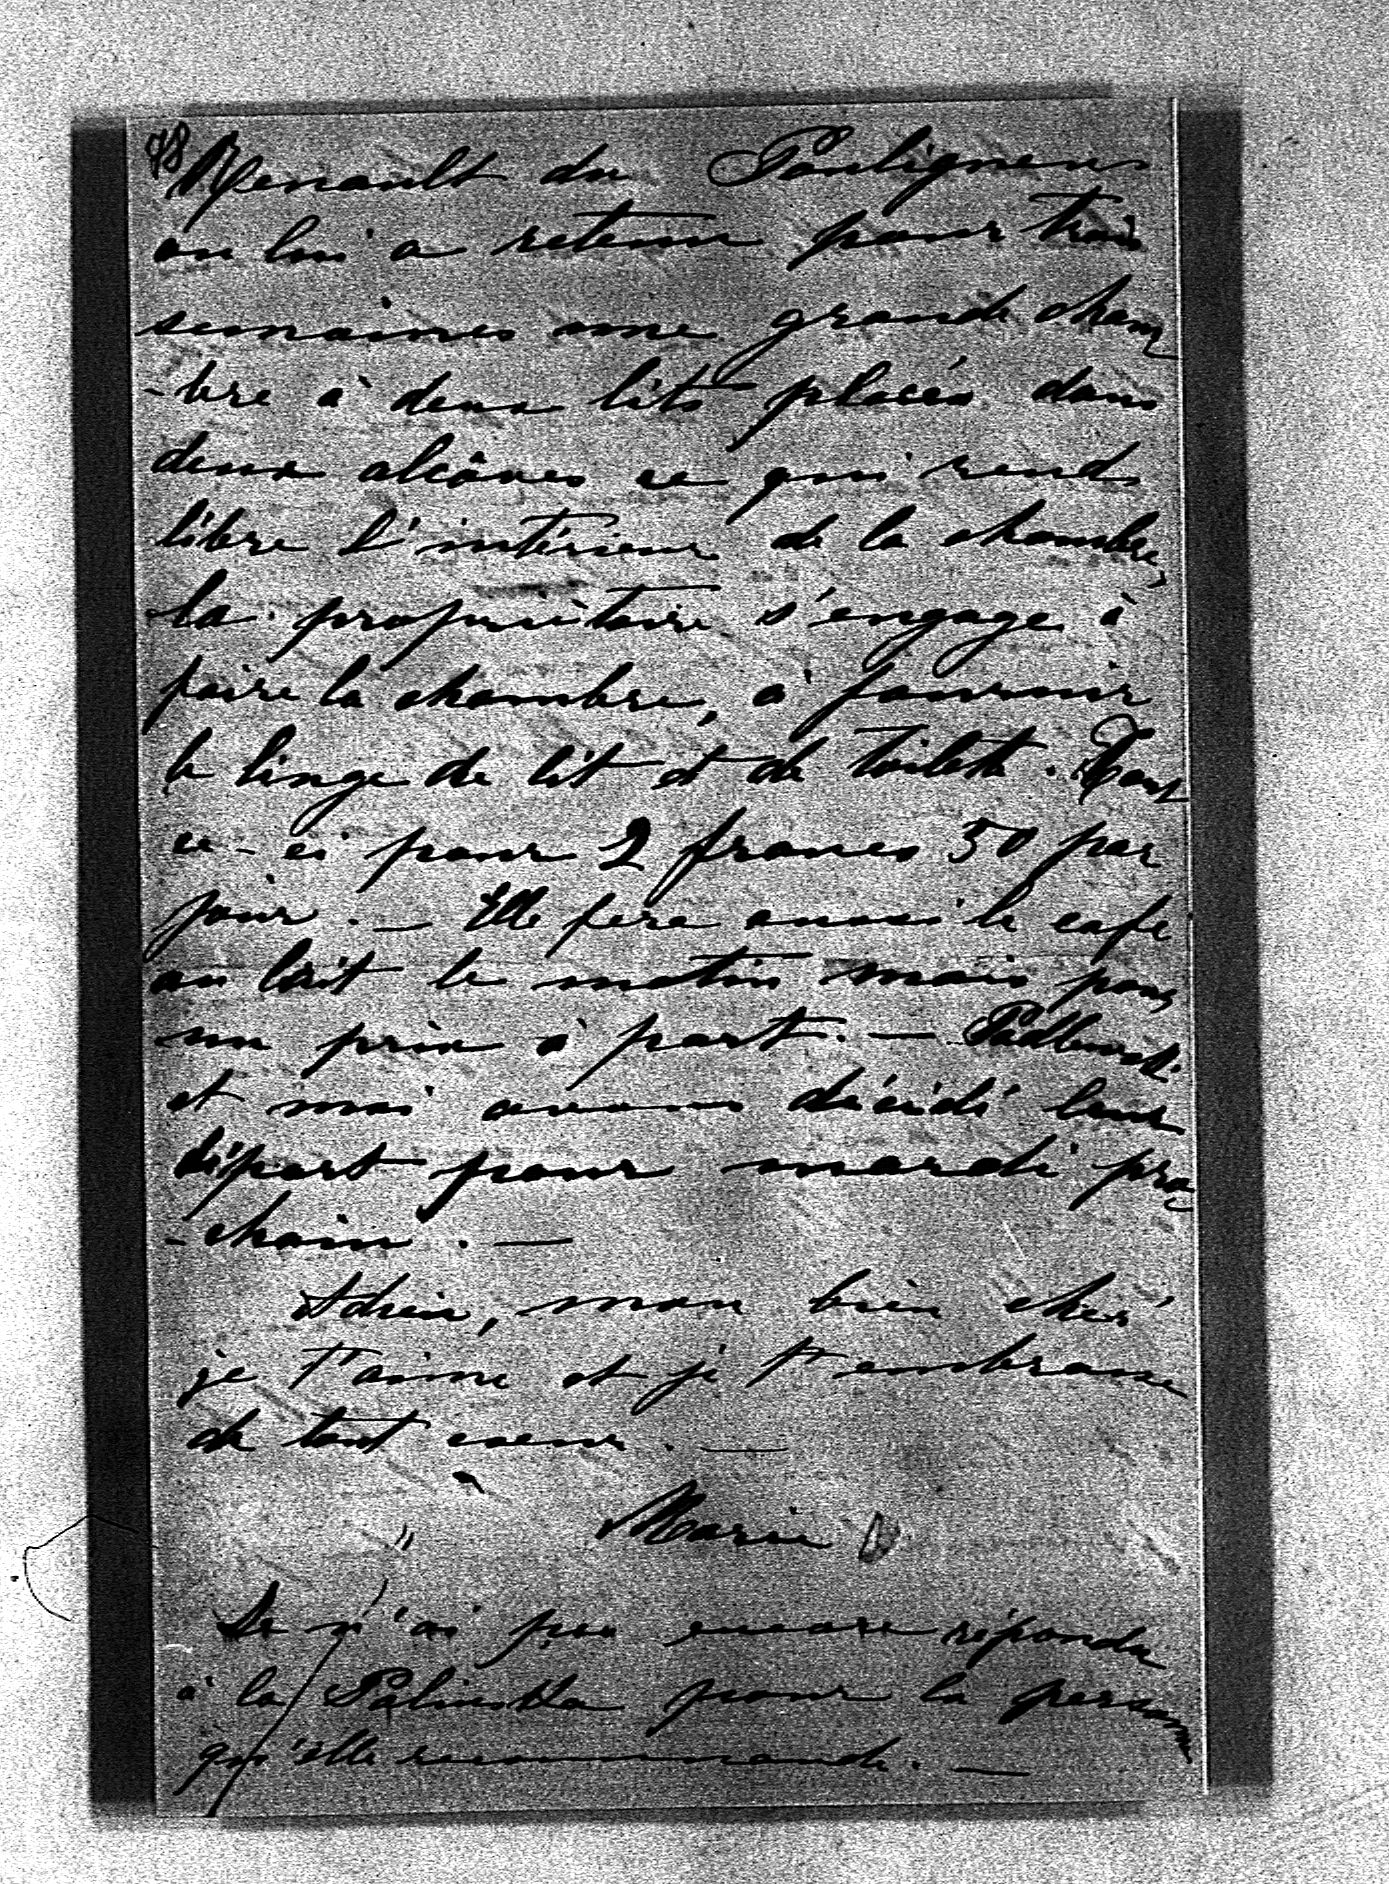 98
Renault du Pouliguen
on lui a retenu pour trois
semaines une grande cham
-bre à deux lits placés dans
deux alcôves ce qui rend
libre l'intérieur de la chambre,
la propriétaire s'engage à
faire la chambre, à fournir
le linge de lit et de toilette. Tout
ce-ci pour 2 francs 50 par
jour. — Elle fera aussi le café
au lait le matin mais pour
un prix à part. —
et moi avons décidé leur
départ pour mardi pro
-chain. —
Adieu, mon bien cher
je t'aime et je t'embrasse
de tout coeur. —
Marie
Je n'ai pas encore répondu
à la Palinska pour la personne
qu'elle recommande. —